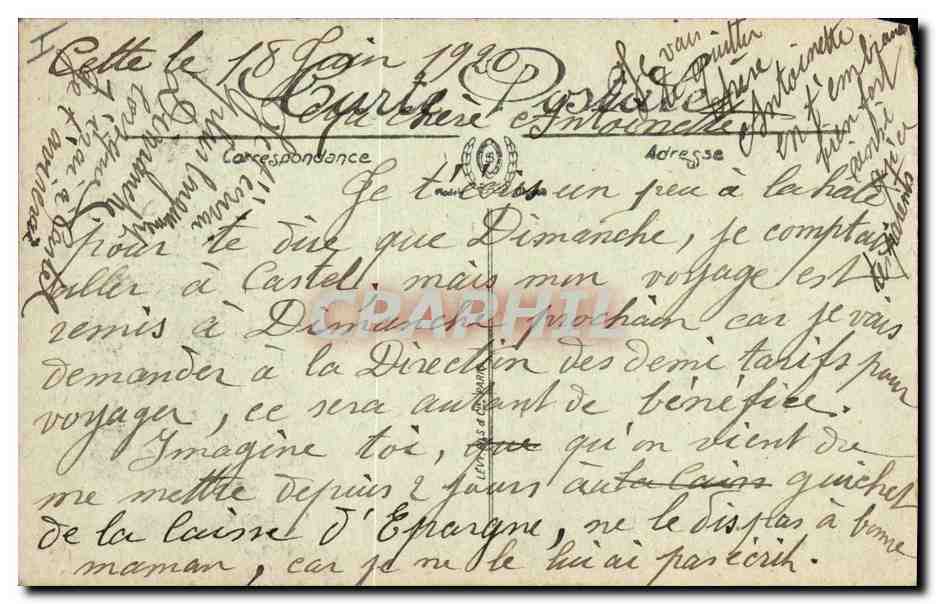 I
Cette le 18 Juin 1920
Carte Postale
Ma chère Antoinette
Correspondance
Adresse
Je t'écris un peu à la hâte
pour te dire que Dimanche, je comptais
aller à Castel, mais mon voyage est
remis à Dimanche prochain car je vais
demander à la Direction des demi tarifs pour
voyager, ce sera autant de bénéfice.
Imagine toi, que qu'on vient de
me mettre depuis 2 jours au la Caiss guichet
de la Caisse d'Epargne, ne le dis pas à bonne
maman, car je ne le lui ai pas écrit.
Je vais
te quitter
chère
Antoinette
en t'embrassant
bien fort
ainsi
les parents
Je t'écrirai
Dimanche
lorsque
j'irai à Castel
Je t'enverrai
LEVY FILS & Cie PARIS
CPARPHIL